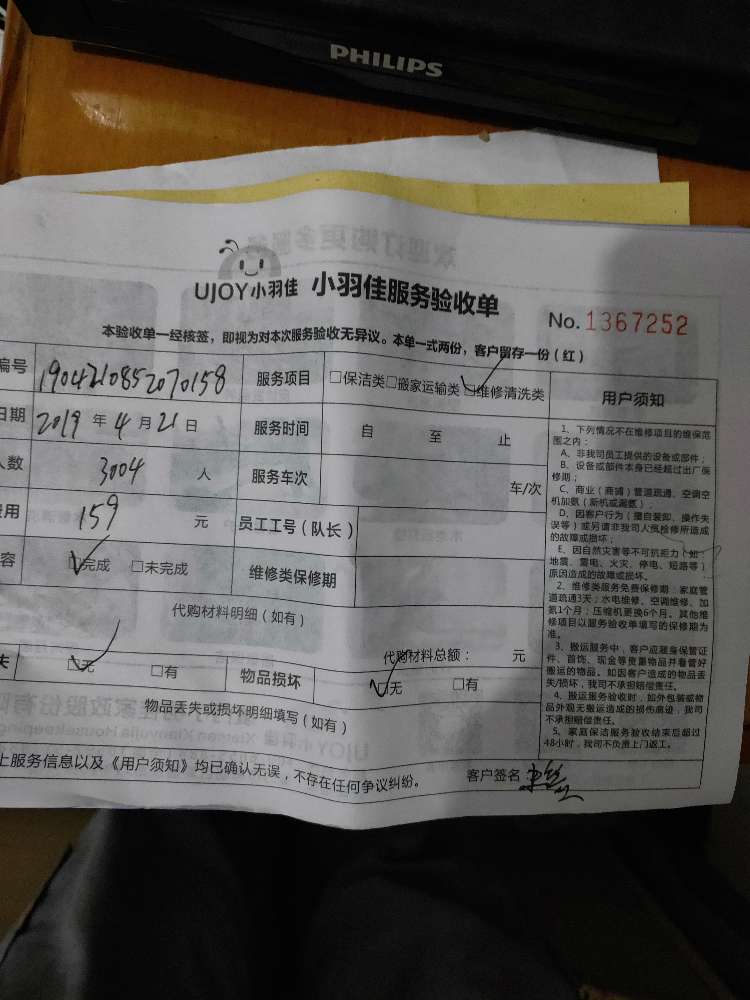 PHILIPS
UJOY小羽佳 小羽佳服务验收单
No. 1367252
本验收单一经核签，即视为对本次服务验收无异议。本单一式两份，客户留存一份（红）
编号 1904210852070158 服务项目 □保洁类□搬家运输类□维修清洗类 用户须知
日期 2019 年 4 月 21 日 服务时间 自 至 止
人数 3004 人 服务车次 车/次
费用 159 元 员工工号（队长）
容 □完成 □未完成 维修类保修期
代购材料明细（如有）
代购材料总额： 元
失 □无 □有 物品损坏 □无 □有
物品丢失或损坏明细填写（如有）
上服务信息以及《用户须知》均已确认无误，不存在任何争议纠纷。 客户签名
1、下列情况不在维修项目的维保范
围之内：
A、非我司员工提供的设备或部件；
B、设备或部件本身已经超过出厂保
修期；
C、商业（商铺）管道疏通、空调空
机加氨（新机或漏氨）；
D、因客户行为（擅自装卸、操作失
误等）或另请非我司人员检修所造成
的故障或损坏；
E、因自然灾害等不可抗拒力（如
地震、雷电、火灾、停电、短路等）
原因造成的故障或损坏。
2、维修类服务免费保修期：家庭管
道疏通3天；水电维修、空调维修、加
氨1个月；压缩机更换6个月。其他维
修项目以服务验收单填写的保修期为
准。
3、搬运服务中，客户应随身保管证
件、首饰、现金等贵重物品并看管好
搬运的物品。如因客户造成的物品丢
失/损坏，我司不承担赔偿责任。
4、搬运服务验收时，如外包装或物
品外观无搬运造成的损伤痕迹，我司
不承担赔偿责任。
5、家庭保洁服务验收结束后超过
48小时，我司不负责上门返工。